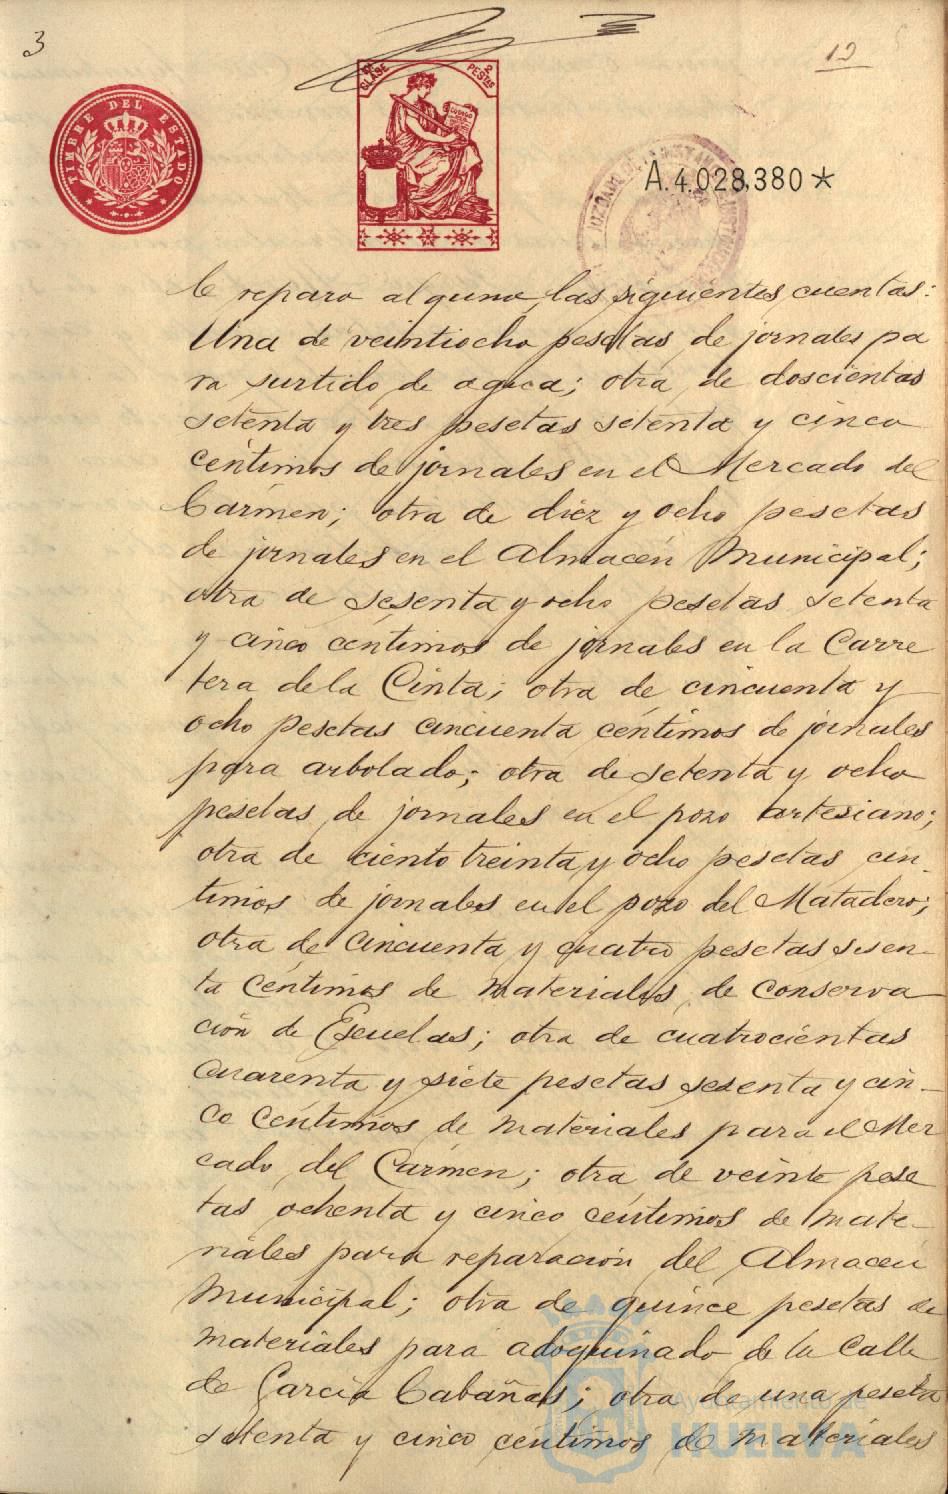 3
12
TIMBRE DEL ESTADO
CLASE 2 PESTAS
A.4.028,380*
le reparo alguno, las siguientes cuentas:
Una de veintiocho pesetas de jornales pa
ra surtido de agua; otra de doscientas
setenta y tres pesetas setenta y cinco
céntimos de jornales en el Mercado del
Cármen; otra de diez y ocho pesetas
de jornales en el Almacén Municipal;
otra de sesenta y ocho pesetas setenta
y cinco céntimos de jornales en la Carre
tera de la Cinta; otra de cincuenta y
ocho pesetas cincuenta céntimos de jornales
para arbolado; otra de setenta y ocho
pesetas de jornales en el pozo artesiano;
otra de ciento treinta y ocho pesetas cén
timos de jornales en el pozo del Matadero;
otra de cincuenta y cuatro pesetas sesen-
ta céntimos de materiales de conserva
ción de Escuelas; otra de cuatrocientas
cuarenta y siete pesetas sesenta y cin-
co céntimos de materiales para el Mer
cado del Cármen; otra de veinte pese
tas ochenta y cinco céntimos de mate-
riales para reparación del Almacén
Municipal; otra de quince pesetas de
materiales para adoquinado de la Calle
de García Cabañas; otra de una peseta
setenta y cinco céntimos de materiales
Ayuntamiento de
HUELVA